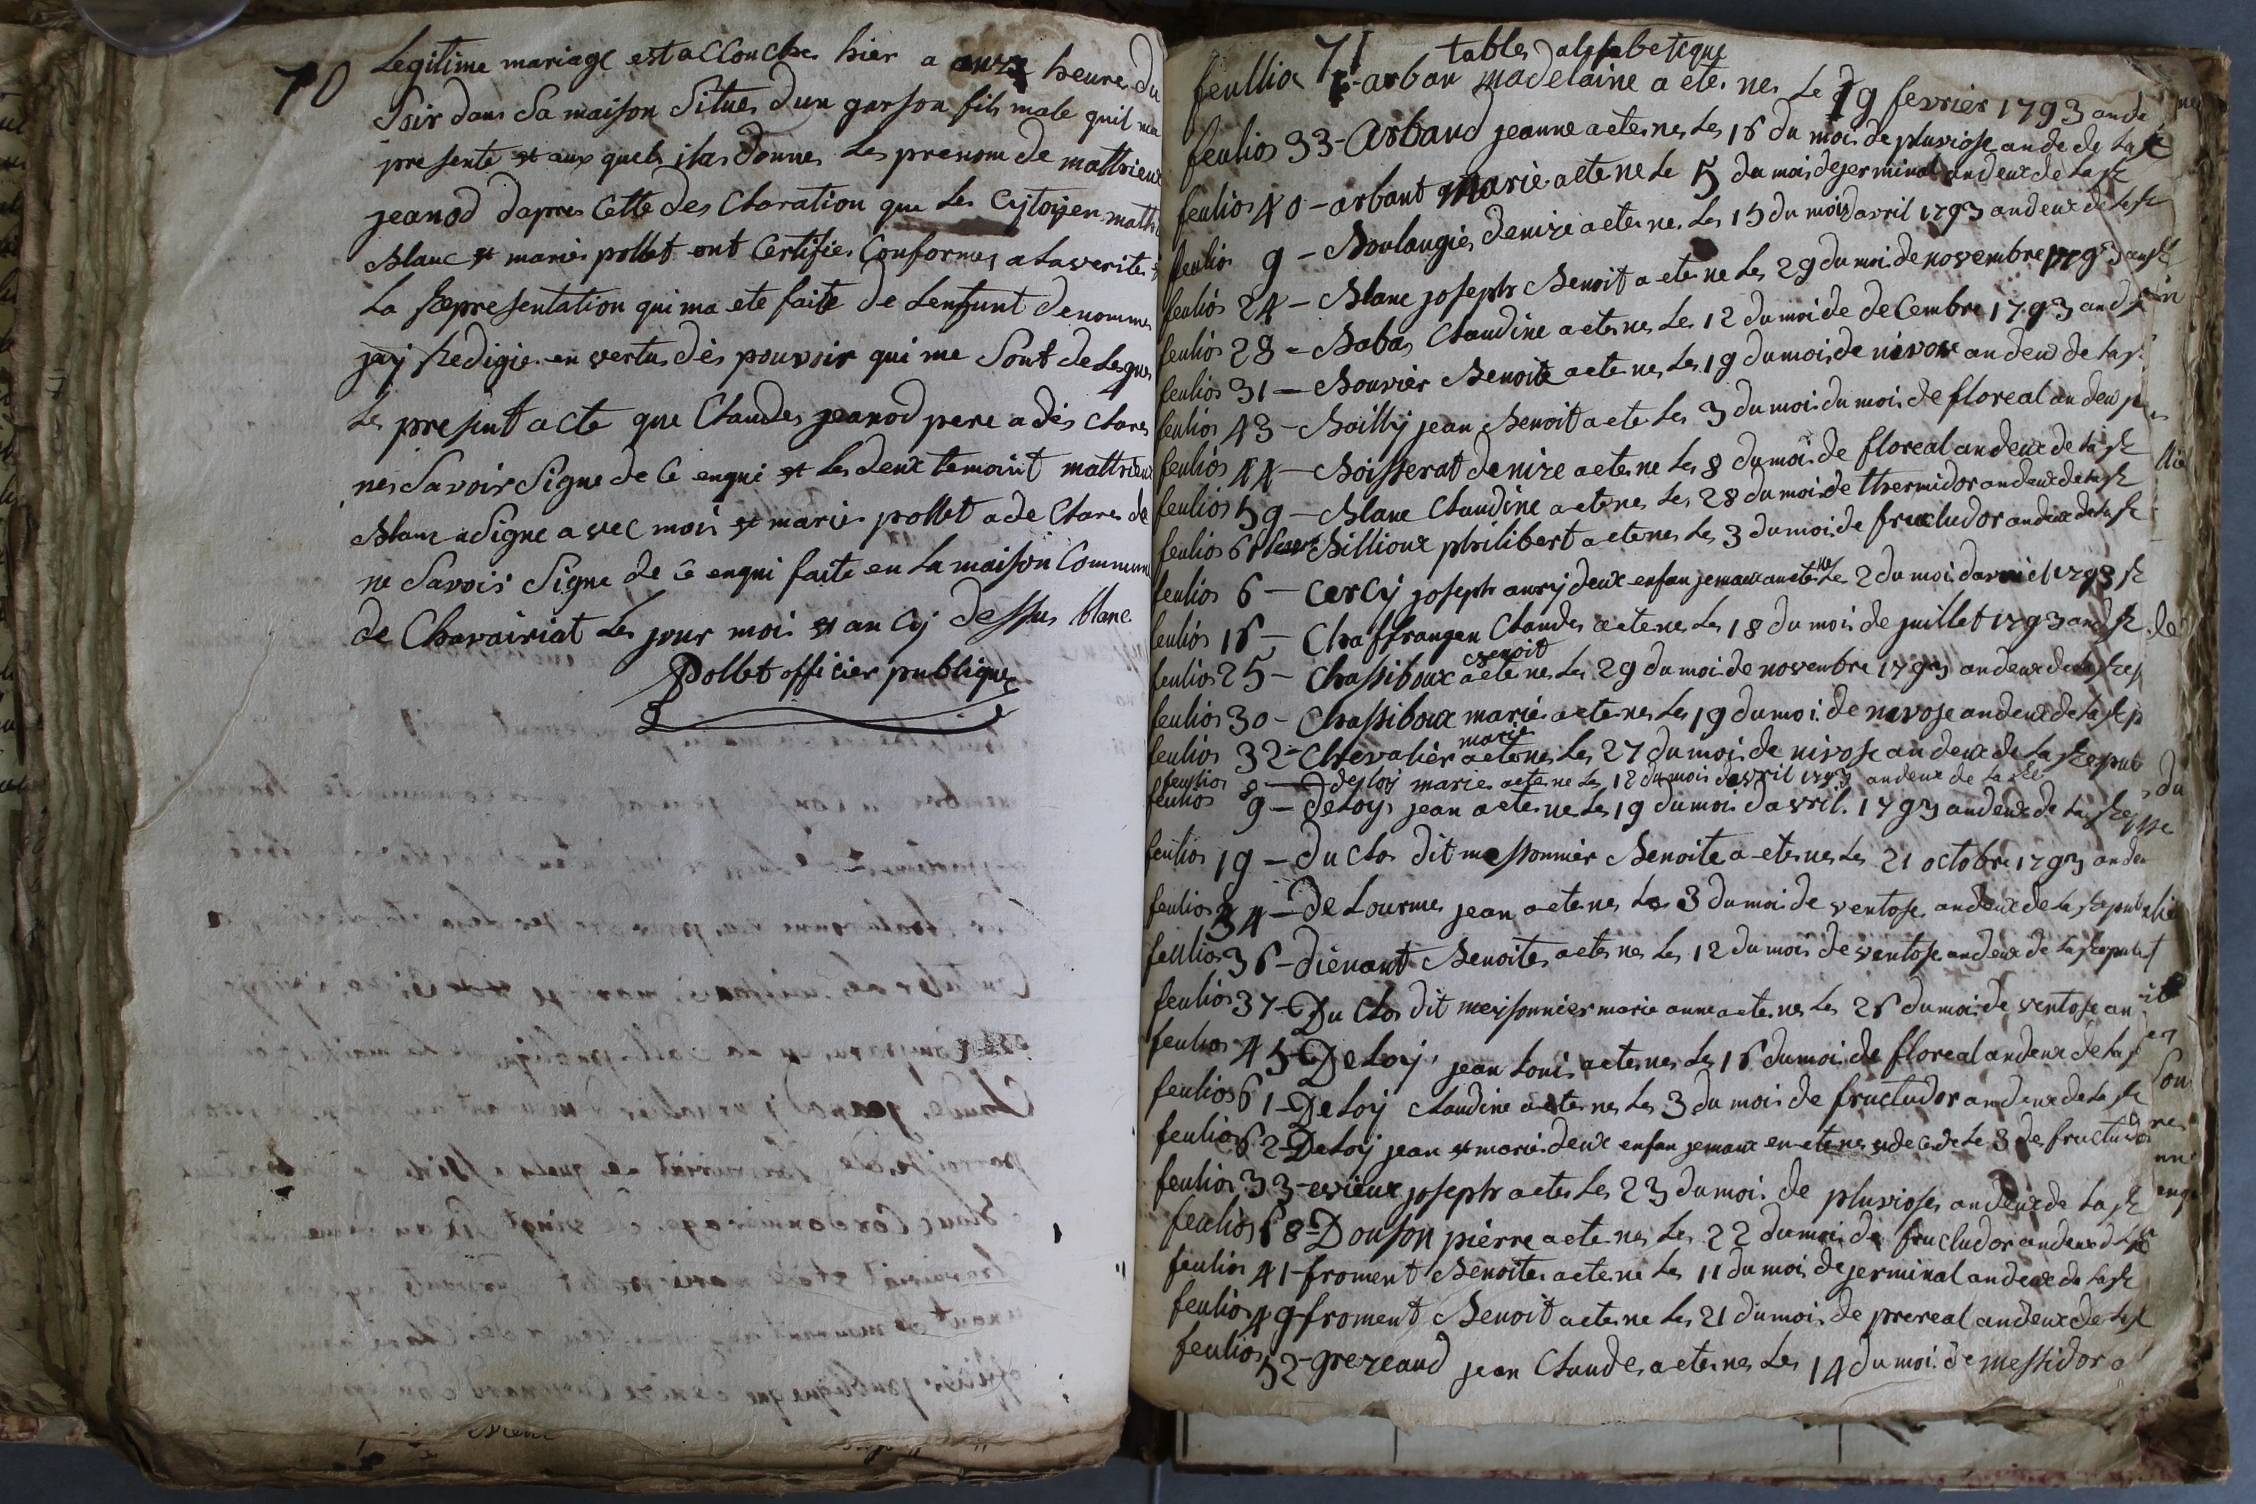 70
Legitime mariage est accouche hier a onze heures du
Soir dans Sa maison Situes dun garson fils male quil ma
presente et aux quels ilas donnes Les prenom de mattrieux
jeanod dapres Cette des Claration que Les Cytoyen
Blanc et maries pollet ont Certifies Conformes a La verites
La Representation qui ma ete faite de Lenfunt denommes
jay Redigie en vertus dès pouvoir qui me Sont delegues
Les present acte que Claudes jeanod pere a dés Clares
nes Savoir Signe de Ce enqui et Les deux temoint mattrieux
Blanc a Signe avec mois et maries pollet a de Clares de
ne Savois Signe de Ce enqui faite en La maison Commune
de Chavairiat Les jour mois et an Cy dessus blanc
Pollet officier publique
71 tables alphabetique
feullios 1 - arban madelaine a etes nes Le 19 fevrier 1793 an de
feulios 33 - arbaud jeanne a etes nes Les 16 du mois de pluviose an de de La R
feulios 40 - arbant marie a ete ne Le 5 du mois de jerminal an deux de La R
feulios 9 - Boulangies denize a etes nes Les 15 du mois davril 1793 an deux de La R
feulios 24 - Blanc joseph Benoit a ete ne Les 29 du moi de novembre 1793
feulios 28 - Babas Claudine a etes nes Les 12 du moi de de Cembre 1793 an d
feulios 31 - Bouvier Benoite a ete nes Les 19 du mois de nivose an deux de La R
feulios 43 - Bailly jean Benoit a ete Les 3 du moi du mois de floreal an deux
feulios 44 - Boisserat denize a etes ne Les 8 du mois de floreal an deux de La R
feulios 59 - Blanc Claudine a etes nes Les 28 du mois de thermidor an deux de La R
feulios 61 Billioux philibert a etes nes Les 3 du mois de fructudor an deux de La R
feulios 6 - Cercy joseph deux enfan jemaux an ete ne Le 2 du moi davriel 1793 R
feulios 16 - Chaffrangen Claudes a etes nes Les 18 du mois de juillet 1793 an d R
feulios 25 - Chassiboux Benoit a ete nes Les 29 du moi de novembre 1793 an deux de La Rep
feulios 30 - Chassiboux maries a etes nes Les 19 du moi de nivose an deux de La R p
feulios 32 - Chevalier marie a etes nes Les 27 du moi de nivose an deux de La Repub
feulios 8 - desloy marie a ete ne Les 12 du mois davril 1793 an deux de La Re
feulios 9 - deloys jean a ete nes Les 19 du moi davril 1793 an deux de La Rep
feulios 19 - du Clos dit messonnier Benoite a etes nes Les 21 octobre 1793 an deu
feulios 34 - de Lourmes jean a ete nes Les 3 du moi de ventose an deux de La Republi
feulios 36 - diénant Benoites a etes nes Les 12 du mois de ventose an deux de La Repub
feulios 37 - Du Clos dit meissonnier marie anne a ete nes Les 26 du moi de ventose an
feulios 45 - De Loy jean Louis a etes nes Les 16 du moi de floreal an deux de La R
feulios 61 - De Loy Claudine a ete nes Les 3 du mois de fructudor an deux de La R
feulios 62 - De Loy jean et maries deux enfan jemaux en etes nes de de Le 3 des fructudor
feulios 33 - evieux joseph a etes Les 23 du mois de pluvioses an deux de La R
feulios 68 - Douson pierre a ete nes Les 22 du mois de fructudor an deux de La R
feulios 41 - froment Benoites a ete ne Les 11 du mois de jerminal an deux de La R
feulios 49 - froment Benoit a ete ne Les 21 du mois de prereal an deux de La R
feulios 52 - grezeaud jean Claudes a etes nes Les 14 du moi de messidor a